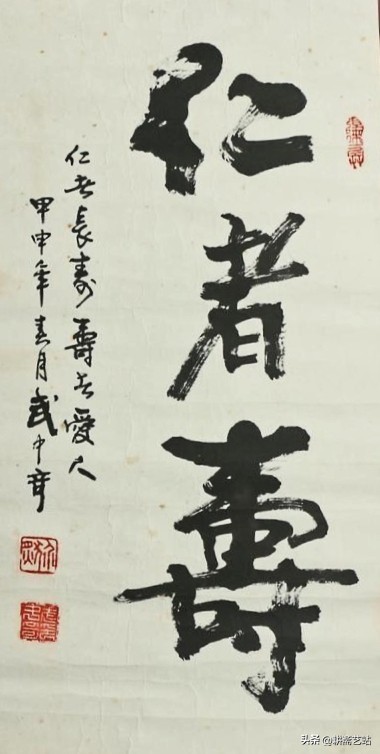 仁者壽
仁者長寿壽者愛人
甲申年春月武中奇
头条 @耕斋艺站